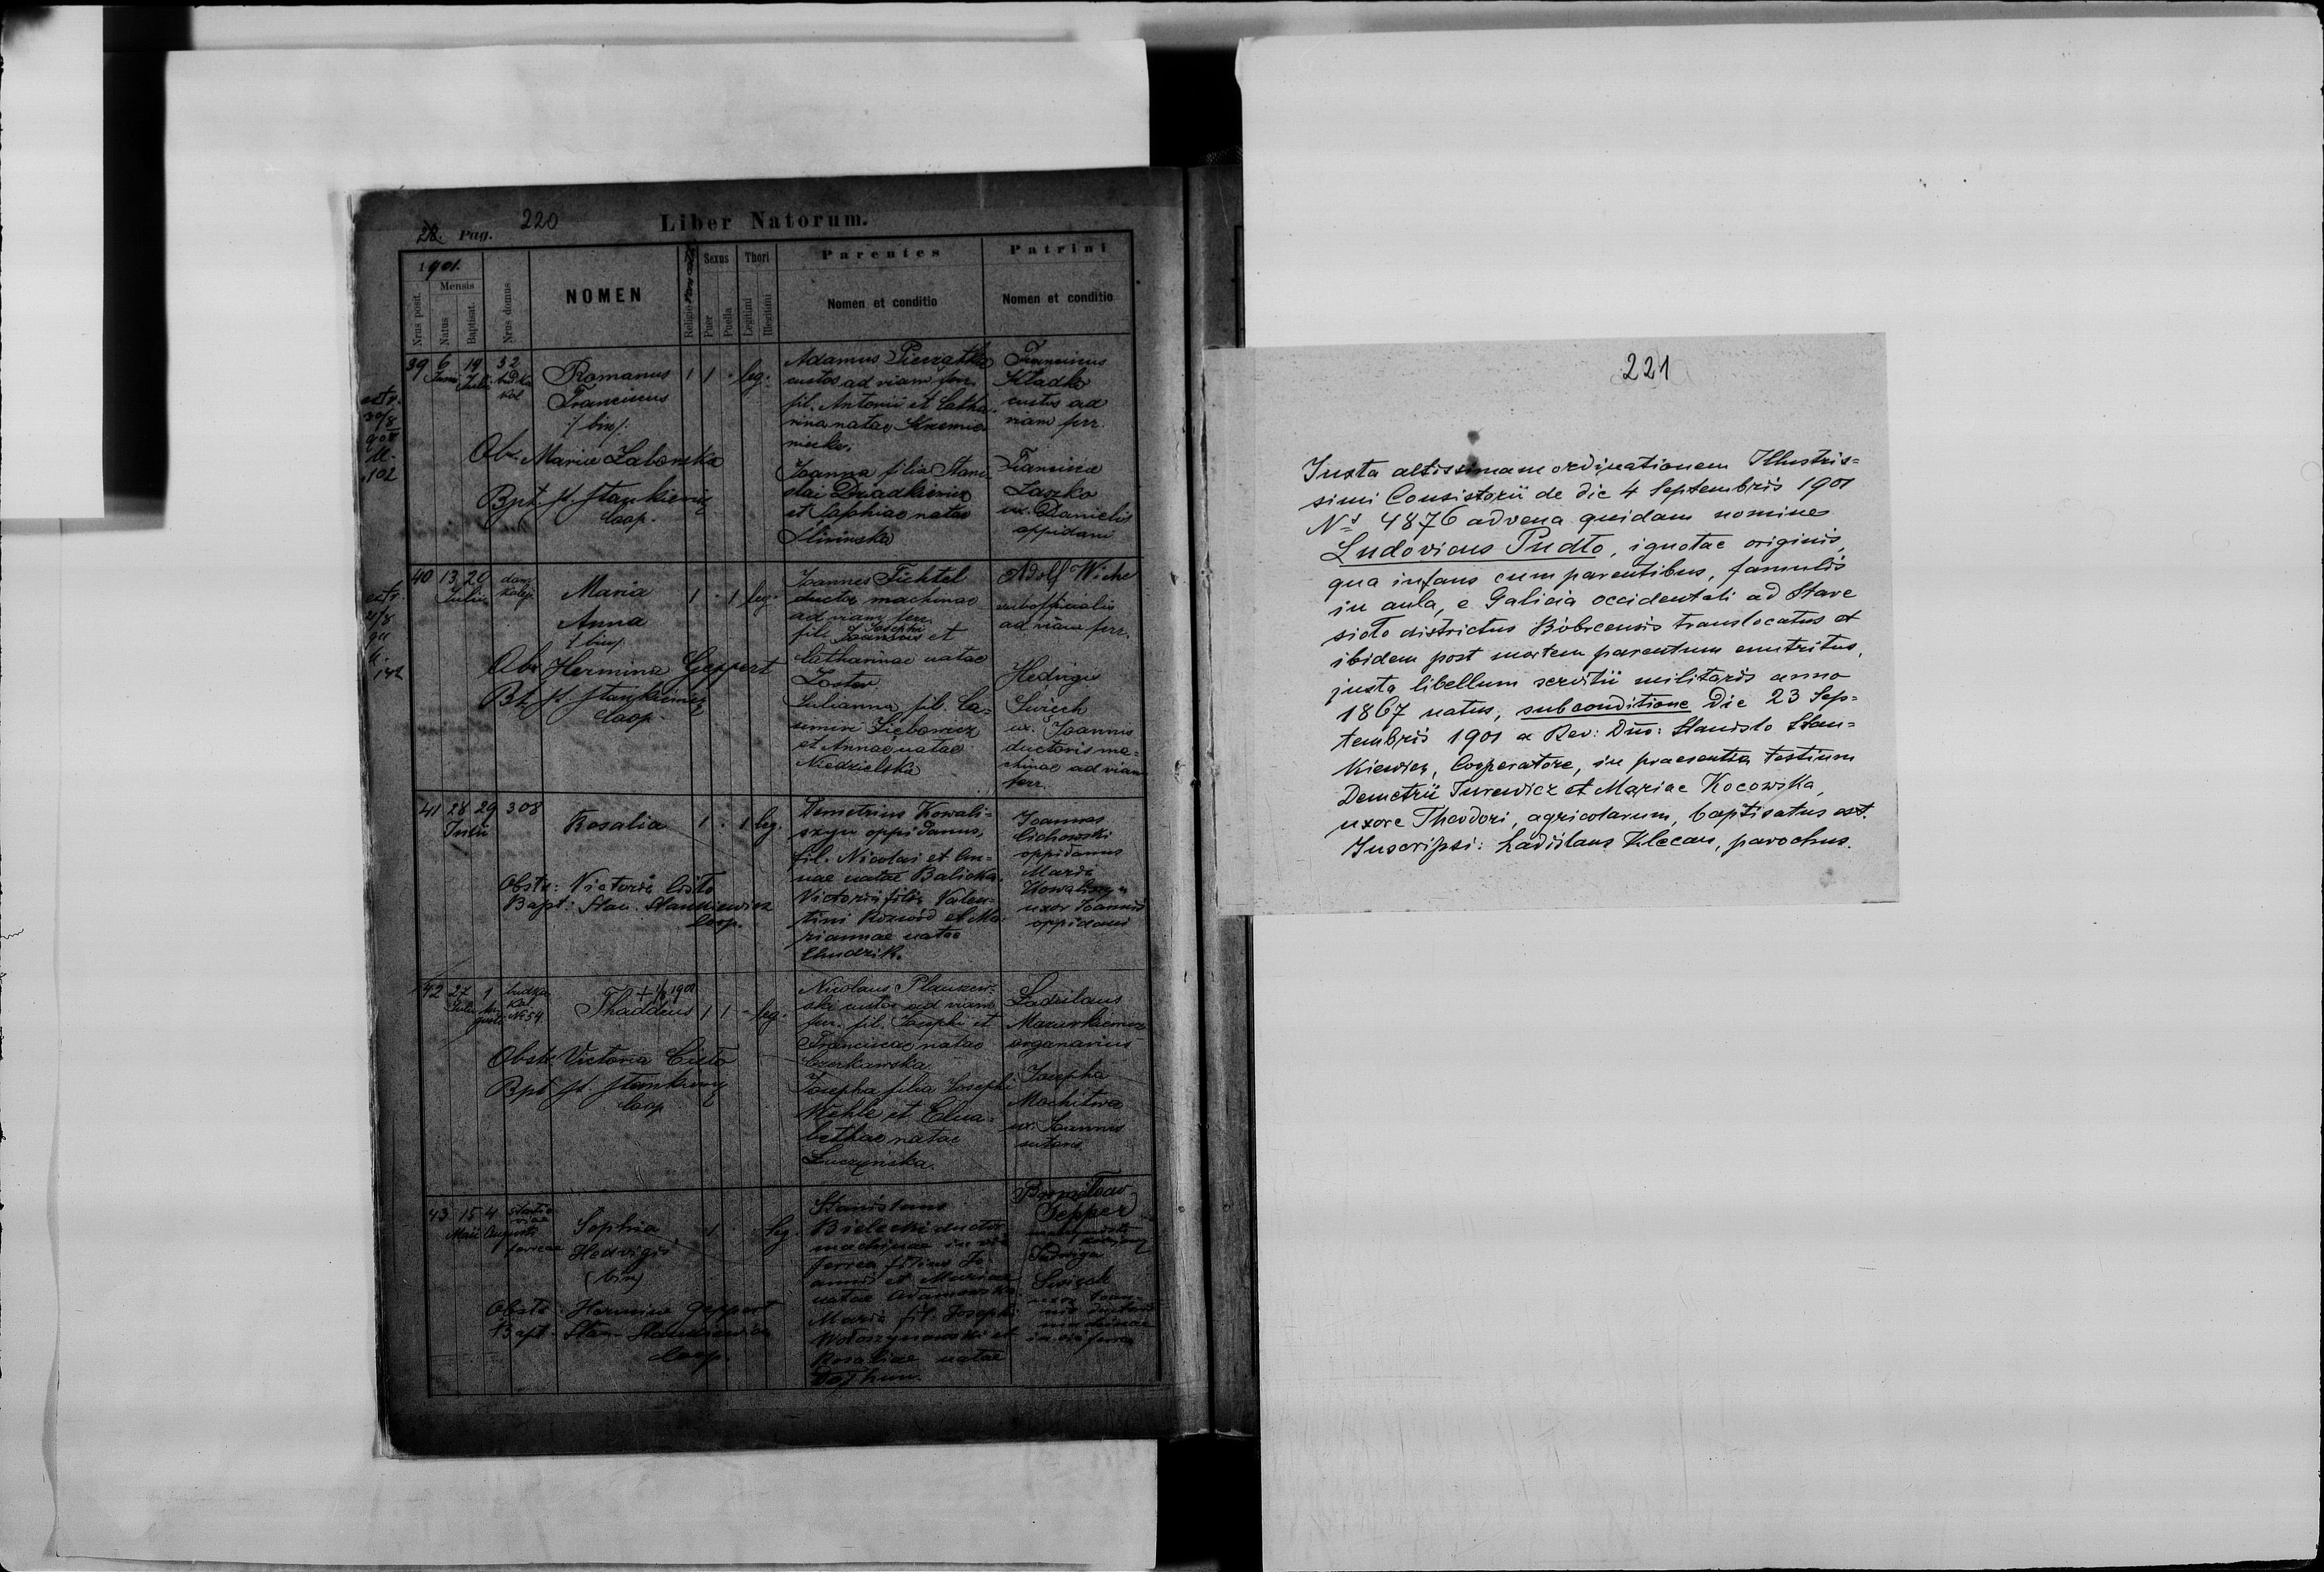 28. Pag. 220 Liber Natorum.
1901.
Mensis
Nrus posit.
Natus
Baptisat.
Nrus domus
NOMEN
Religio
Sexus
Puer
Puella
Thori
Legitimi
Illegitimi
Parentes
Nomen et conditio
Patrini
Nomen et conditio
extr.
30/8
102
39 6 Junii 19 Julii 52 budka kol
Romanus
Franciscus
/bin/.
1 1 · leg.
Obs. Maria Zaborska
Bpt. St. Stankiewicz
Coop.
Adamus Pieczątka
custos ad viam ferr.
fil. Antonii et Catha-
rina natae Krzemie-
niecka.
Joanna filia Stani-
slai Dziadkiewicz
et Sophiae natae
Sliwinska
Franciscus
Kladko
custos ad
viam ferr.
Francisca
Laszko
ux. Danielis
oppidani
extr.
21/8
142
40 13 20 Julii dom kolej.
Maria
Anna
/bin/.
1 · 1 leg.
Obs. Hermina Geppert
Bpt. St. Stankiewicz
Coop.
Joannes Fichtel
ductor machinae
ad viam ferr.
Josephi
fil. Joannis et
Catharinae natae
Zoster
Julianna fil. Ca-
simiri Ziębowicz
et Annae natae
Niedzielska
Adolf Wiche
subofficialis
ad viam ferr.
Hedvigis
Swiech
ux. Joannis
ductoris ma-
chinae ad viam
ferr.
41 28 29 Julii 308
Rosalia
1 · 1 leg.
Obstr: Victoria Cisto
Bapt: Stan. Stankiewicz
Coop.
Demetrius Kowali-
szyn oppidanus,
fil. Nicolai et An-
nae natae Balicka.
Victoria filia Valen-
tini Rozwód et Ma-
riannae natae
Chudzik.
Joannes
Cichowski
oppidanus
Maria
Kowaliszyn
uxor Joannis
oppidani
42 27 Julii 1 Augusti budka kol. № 54
Thaddeus
1 1 - leg.
Obstr. Victoria Cisto
Bpt. St. Stankiewicz
Coop
Nicolaus Plauszew-
ski custos ad viam
ferr. fil. Josephi et
Franciscae natae
Czerkawska.
Josepha filia Josephi
Wehle et Elisa-
bethae natae
Łuczyńska.
Ladislaus
Mazurkiewicz
organarius
Josepha
Machitwa
ux. Joannis
sutoris
43 15 Maii 4 Augusti statio viae ferreae
Sophia
Hedvigis
(bin)
1 leg.
Obstr: Hermina Geppert
Bapt: Stan. Stankiewicz
Coop.
Stanislaus
Bielecki ductor
machinae in via
ferrea filius Jo-
annis et Mariae
natae Adamowska
Maria fil. Josephi
Wołoszynowski et
Rosaliae natae
Bronisław
Tepper
Jadwiga
Swiąch
uxor Joan-
nis ductoris
machinae
in via ferrea
221
Juxta altissimam ordinationem Illustris=
simi Consistorii de die 4 Septembris 1901
Nº 4876 advena quidam nomine
Ludovicus Pudło, ignotae originis,
qua infans cum parentibus, famulis
in aula, e Galicia occidentali ad Stare
sioło districtus Bóbrcensis translocatus et
ibidem post mortem parentum enutritus,
juxta libellum servitii militaris anno
1867 natus, subconditione die 23 Sep=
tembris 1901 a Rev: Dno: Stanislo Stan=
kiewicz, Cooperatore, in praesentia testium
Demetrii Jurewicz et Mariae Kocowska,
uxore Theodori, agricolarum, baptisatus est.
Inscripsi: Ladislaus Klecan, parochus.